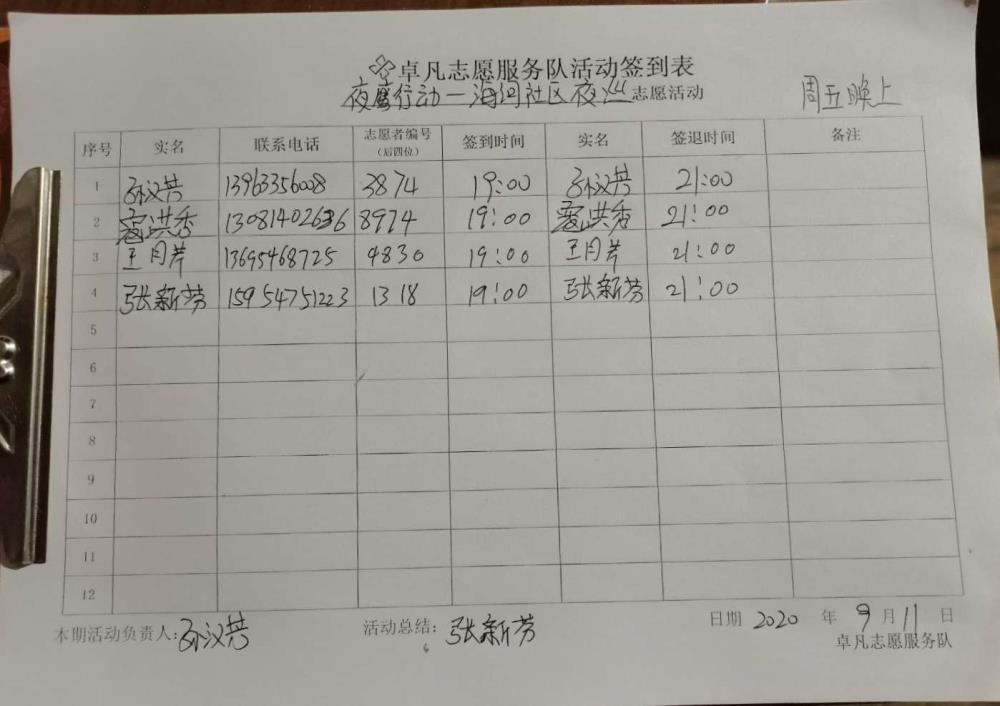 卓凡志愿服务队活动签到表
夜鹰行动—海河社区夜巡志愿活动 周五晚上
序号 实名 联系电话 志愿者编号（后四位） 签到时间 实名 签退时间 备注
1 孙汉芸 13963356008 3874 19:00 孙汉芸 21:00
2 洪秀 13081402636 8974 19:00 洪秀 21:00
3 王月芹 13695468725 4830 19:00 王月芹 21:00
4 张新芳 15954751223 1318 19:00 张新芳 21:00
5
6
7
8
9
10
11
12
本期活动负责人:孙汉芸 活动总结: 张新芳 日期 2020 年 9 月 11 日
卓凡志愿服务队